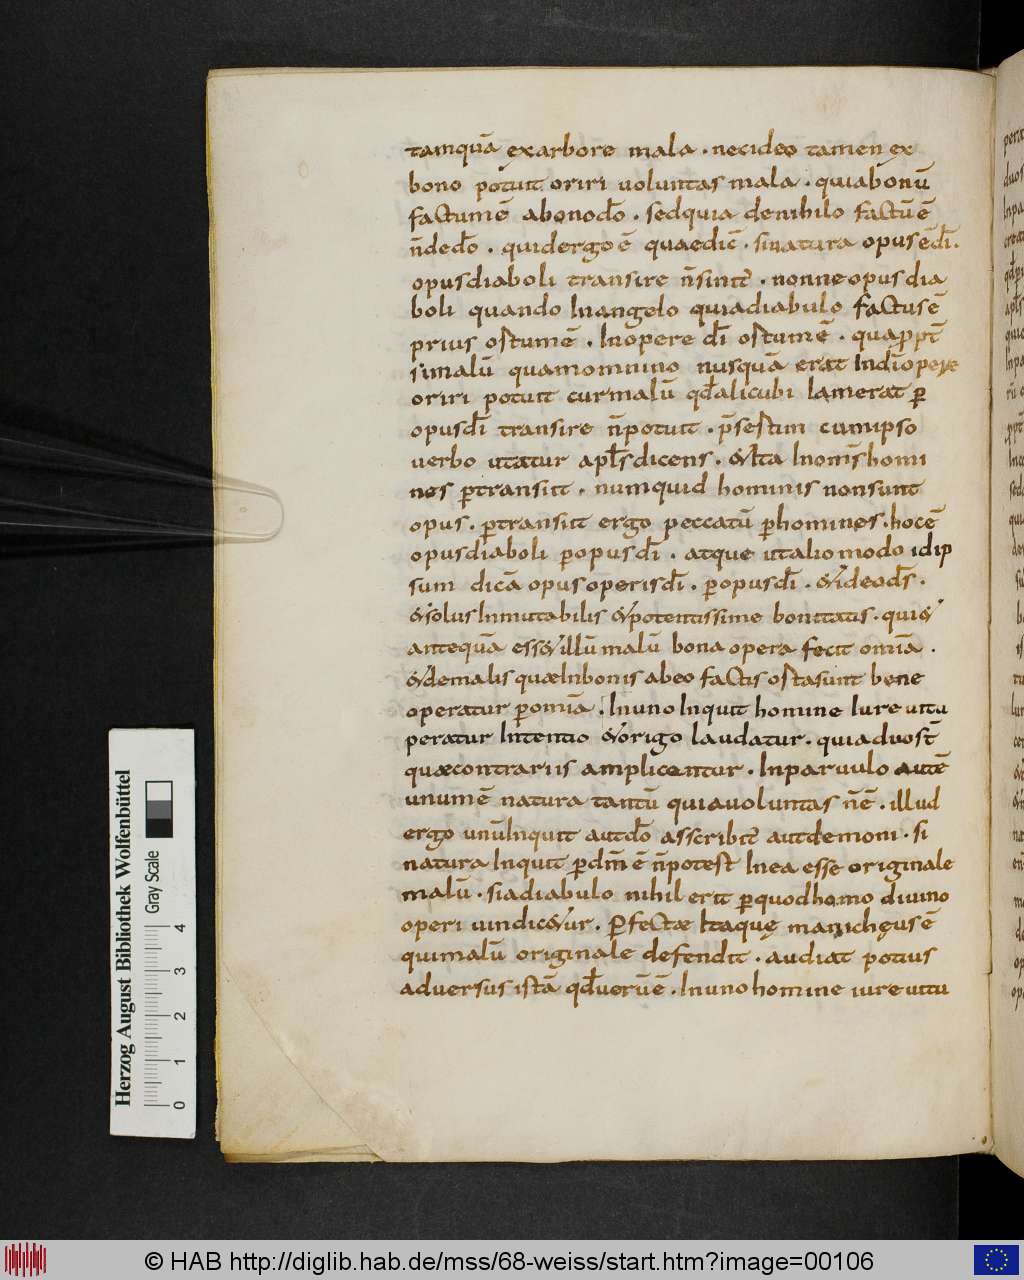 tamquā exarbore mala . necideo tamen ex
bono potuit oriri uoluntas mala . quiabonū
factumē abonodo̅ . sedquia denihilo factū ē
n̅dedo̅ . quidergo ē quaedic̅ . sinatura opus ē di̅ .
opusdiaboli transire n̅sinit̅ . nonne opus dia
boli quando Inangelo quiadiabulo factusē
prius ostumē . Inopere di̅ ostumē . quapp̅t̅
simalū quamomnino nusquā erat Indi̅opere
oriri potuit curmalū qd̅alicubi Iamerat ꝑ
opusdi̅ transire n̅potuit . p̅sestim cumipso
uerbo utatur apl̅s dicens . &Ita Inom̅s homi
nes ꝑtransiit . numquid hominis nonsunt
opus . ꝑtransiit ergo peccatū ꝑhomines . hocē
opusdiaboli ꝑopus di̅ . atque utalio modo idip
sum dicā opus operisdi̅ . ꝑopusdi̅ . &ideod̅s .
&solusInmutabilis &potentissime bonitatis . qui&
antequā ess&illū malū bona opera fecit omīa .
&demalis quæInbonis abeo factis ostasunt bene
operatur ꝑomīa . Inuno Inquit homine Iure uitu
peratur Intentio &origo laudatur . quiaduost̅
quæcontrariis amplicentur . Inparuulo autē
unumē natura tantū quiauoluntas n̅ē . illud
ergo unūInquit autdo̅ asscribit̅ autdemoni . si
natura Inquit ꝑdm̅ ē n̅potest Inea esse originale
malū . siadiabulo nihil erit ꝑquodhomo diuino
operi uindic&ur . Ꝑfectæ Itaquę manichęus ē
quimalū originale defendit . audiat potius
aduersus istā qd̅uerūē . Inuno homine iure uitu
Herzog August Bibliothek Wolfenbüttel
Gray Scale
0 1 2 3 4
© HAB http://diglib.hab.de/mss/68-weiss/start.htm?image=00106